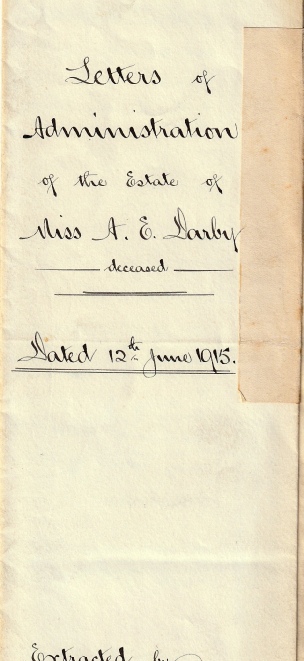 Letters of
Administration
of the Estate of
Miss A. E. Darby
deceased
Dated 12th June 1915.
Extracted by